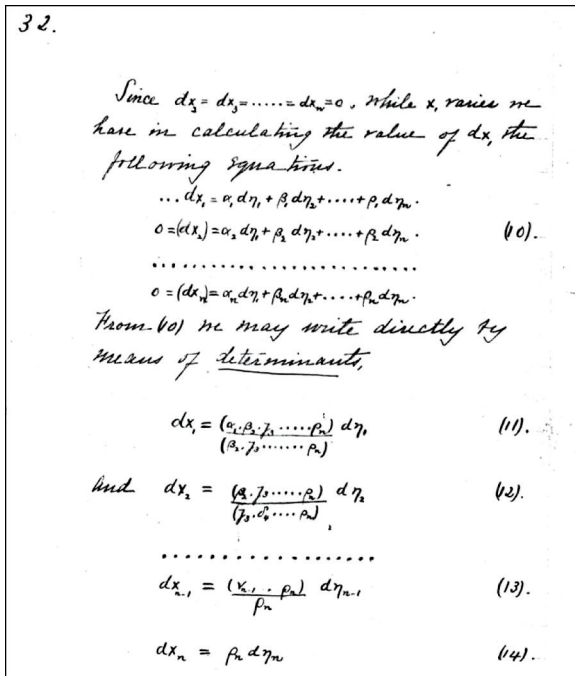 32.
Since dx₃ = dx₃ = ..... = dxₙ = 0, while x, varies we
have in calculating the value of dx, the
following equations.
... dx₁ = α₁dη₁ + β₁dη₂ + .... + ρ₁dηₙ.
0 = (dx₂) = α₂dη₁ + β₂dη₂ + .... + ρ₂dηₙ. (10).
..............................
0 = (dxₙ) = αₙdη₁ + βₙdη₂ + .... + ρₙdηₙ.
From (10) we may write directly by
means of determinants,
dx₁ = (α₁.β₂.γ₃.....ρₙ)/(β₂.γ₃......ρₙ) dη₁ (11).
And dx₂ = (β₂.γ₃.....ρₙ)/(γ₃.δ₄....ρₙ) dη₂ (12).
....................
dxₙ₋₁ = (νₙ₋₁ . ρₙ)/ρₙ dηₙ₋₁ (13).
dxₙ = ρₙ dηₙ (14).